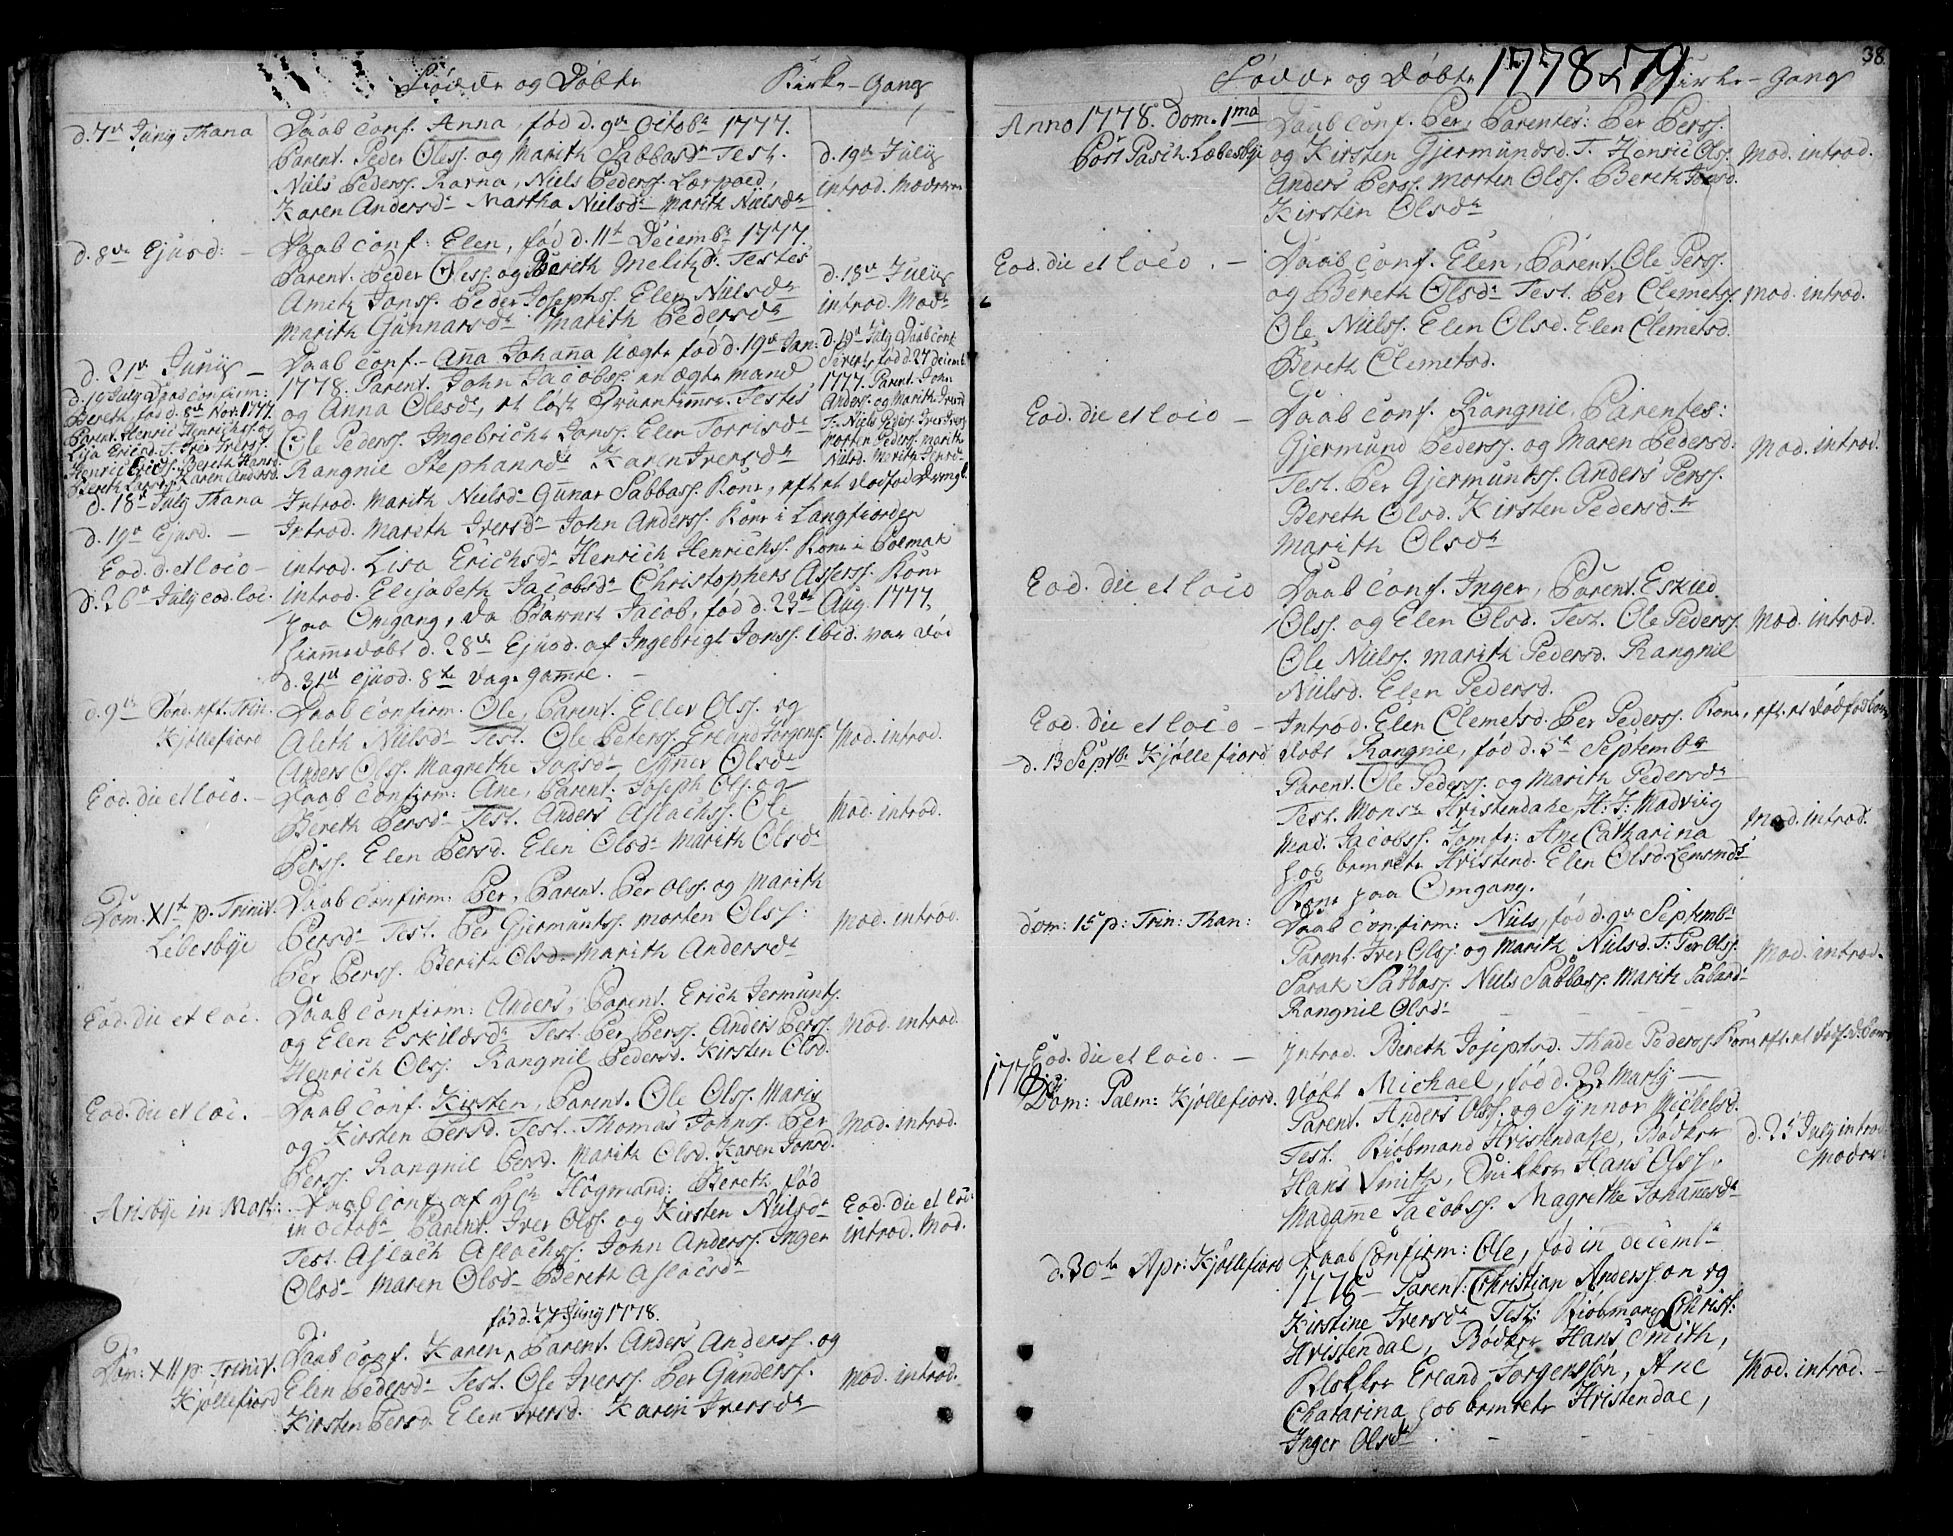 Fødde og Døbte
Kirke-Gang
d. 7de Junij Thana
Daab Conf. Anna, fød d. 9de Octobr 1777.
Parent. Peder Olss. og Marith Sabbasdr Test.
Niels Pederss. Karna, Niels Pederss. Lærpoed,
Karen Andersdr Martha Nielsdr Marith Nielsdr
d. 19de Julij
introd. Moderen
d. 8de Ejusd: -
Daab Conf: Elen, fød d. 11te Decembr 1777.
Parent: Peder Olss. og Bereth Melitsd. Testes
Ametz Jonss. Peder Josephss. Elen Nielsdr
Marith Gunnarsdr Marith Pedersdr
d. 18de Julij
introd. Modr
d. 21de Junij -
Daab Conf. Aña Johaña uægte fød d. 19de Jan:
1778. Parent. John Jacobss. en ægte mand
og Anna Olesdr, et løst Qvuentimmer. Testes
Ole Pederss. Ingebricht Jonss. Elen Torrisdr
Rangnil Stephansdr Karen Iversdr
d. 19de July Daab Conf.
Sivert, fød d. 27 Decemb
1777. Parent. John
Anders. og Marith Iversd
T: Niels Peders. Iver Ivers.
Morten Pederss. Marith
Nielsd. Merith Henrdr
d. 10 July Daab Confirm:
Bereth, fød d. 8de Nov. 1777.
Parent. Henric Henrichs. og
Lisa Ericsd. T. Iver Iverss.
Henric Ericss. Bereth Hansd
Bereth Larsd. Karen Andersd.
d. 18de July Thana
Introd. Marith Nielsdr Gunar Sabbass. Kone, eft. et dødfød Drengb.
d. 19de Ejusd. -
Introd. Marith Iversdr John Anderss. Kone i Langfiorden
Eod. d. et loco -
introd. Lisa Erichsdr Henrich Henrichss. Kone i Polmak
d. 26de July eod. loc.
introd. Elisabeth Jacobsdr Christophers Asserss. Kone
paa Omgang, da Barnet Jacob, fød d. 23de Aug. 1777,
hiemmedøbt d. 28de Ejusd. af Ingebrigt Jonss. ibid. var død
d. 31de ejusd. 8te Dage gamle. -
d. 9de Sønd. eft. Trin.
Kjøllefiord
Daab Confirm. Ole, Parent. Eller Olss. og
Aleth Nielsdr Test. Ole Peterss. Erland Jørgens.
Anders Olss. Magrethe Jonsdr Synev Olsdr
Mod. introd.
Eod. die et loco. -
Daab Confirm: Ane, Parent. Joseph Ols. og
Bereth Persdr Test. Anders Aslachss. Ole
Perss. Elen Persd. Elen Olsdr Marith Olsdr
Mod. introd.
Dom. XIte p. Trinit.
Lebesbye
Daab Confirm: Per, Parent. Per Olss. og Marith
Persdr Test. Per Gjermuntss. Morten Olss:
Per Perss. Berith Olsd. Marith Andersdr
Mod. introd.
Eod. die et loc.
Daab Confirm: Anders, Parent. Erich Jermunts.
og Elen Eskildsdr Test. Per Perss. Anders Perss.
Henrich Olss. Rangnil Pedersd. Kirsten Olsd.
Mod. introd.
Eod. die et loc. -
Daab Conf. Kirsten, Parent. Ole Olss. Maris
og Kirsten Persd. Test. Thomas Johns. Per
Perss. Rangnil Persd. Marith Olsd. Karen Jonsd.
Mod. introd.
Arisbye in Mart:
Daab Conf. af Hr. Høgmand: Bereth fød
in Octobr Parent. Iver Olss. og Kirsten Nielsdr
Test. Aslach Aslachss. John Anderss. Inger
Olsdr Maren Olsdr Bereth Aslacsdr
Eod. die et loc.
introd. Mod.
fød d. 27 Junij 1778.
Dom: XII p. Trinit.
Kjøllefiord
Daab Conf. Karen, Parent. Anders Anderss. og
Elen Pedersdr Test. Ole Iverss. Per Gunderss.
Kirsten Persd. Elen Iversd. Karen Iversdr
Mod. introd.
Fødde og Døbte
1778 & 79
Kirke-Gang
38
Anno 1778. Dom. 1ma
Post Pasch. Læbesbye
Daab Conf. Per, Parentes: Per Perss.
og Kirsten Gjermundsd. T. Henric Olss.
Anders Perss. Morten Olss. Bereth Jonsd.
Kirsten Olsdr
Mod. introd.
Eod. die et loco. -
Daab Conf. Elen, Parent. Ole Perss.
og Bereth Olsdr Test. Per Clemetss.
Ole Nielss. Elen Olsd. Elen Clemetsd.
Bereth Clemetsd.
Mod. introd.
Eod. die et loco -
Daab Conf. Rangnil, Parentes:
Gjermund Pederss. og Maren Pedersd:
Test. Per Gjermuntss. Anders Perss.
Bereth Olsd. Kirsten Pedersdr
Marith Olsdr
Mod. introd.
Eod. die et loco
Daab Conf. Inger, Parent. Eskied
Olss. og Elen Olsd. Test. Ole Pederss.
Ole Nielss. Marith Pedersd. Rangnil
Nielsd. Elen Pedersd.
Mod. introd.
Eod. die et loco -
Introd. Elen Clemetsd. Per Pederss. Kone, eft. et dødfød barn
d. 13 Septbr Kjøllefiord
døbt Rangnie, fød d. 5te Septembr
Parent. Ole Pederss. og Marith Pedersdr
Test. Monsr Hristendahe, H: J: Madviig
Mad. Jacobss. Jomfr: Ane Catharina
hos bemelte Hristend. Elen Olsd. Lensmds
Kone paa Omgang.
Mod. introd.
Dom: 15 p: Trin: Than:
Daab Confirm: Niels, fød d. 9de Septembr
Parent. Iver Olss. og Marith Nielsd. T: Per Olss.
Sarak Sabbas. Niels Sabbass. Marith Sabasdr
Rangnil Olsdr
Mod. introd.
Eod. die et loco. -
Introd. Bereth Josephsd. Thade Pederss. Kone eft. et dødf. D. barn
1779
Dom: Palm: Kjøllefiord.
døbt Michael, fød d. 22 Martij -
Parent. Anders Olss. og Synnor Michelsd.
Test. Kiøbmand Hristendahe, Bødker
Hans Smith, Snikker Hans Olss,
Madame Jacobss. Magrethe Johañesdr
d. 25 July introd
Moder:
d. 30te Apr: Kjøllefiord
Daab Confirm: Ole, fød in Decembr
1778 - Parent: Christian Anderss on og
Kirstine Iversdr Test: Kiøbmand Christ:
Hristendal, Bødker Hans Smith,
Blokker Erland Jørgenssøn, Ane
Chatarina hos bemelte Hristendal,
Inger Olsdr
Mod. introd. -